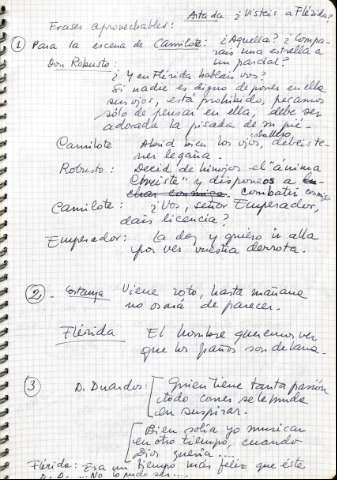 Artada ¿Visteis a Flérida?
Frases aprovechables:
① Para la escena de Camilote: ¿Aquella? ¿Compa-
ráis una estrella a
un parcial?
Don Robusto:
¿Y en Flérida habláis vos?
Si nadie es digno de poner en ella
sus ojos, está prohibido, pecamos
sólo de pensar en ella, debe ser
adorada la pisada de su pié.
Camilote Abrid bien los ojos, caballero, debéis te-
ner legaña.
Robusto: Decid de hinojos el "ánima
Christe" y disponeos a
combatir conmigo
Camilote: ¿Vos, señor Emperador,
dais licencia?
Emperador: La doy y quiero ir allá
por ver vuestra derrota.
②. Viene roto, hasta mañana
no osará de parecer.
Flérida El hombre queremos ver
que los paños son de lana.
③ D. Duardos: Quien tiene tanta pasión
todo comer se le muda
en suspirar.
Bien solía yo musicar
en otro tiempo, cuando
Dios quería....
Flérida: Era un tiempo más feliz que éste
D.D. ... No lo pudo ser....